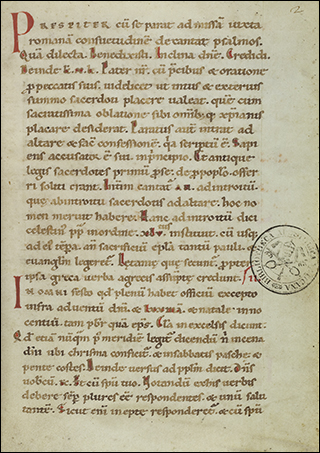 2
PRESBITER cū se parat ad missā iuxta
romanā consuetudinē decantat psalmos.
Quā dilecta. Benedixisti. Inclina dn̄e. Credidi.
Deinde k. x. k. Pater nr̄. cū p̄cibus & oratione
p peccatis suis. ut intus & exterius
summo sacerdoti placere ualeat. quē cum
sacratissima oblatione sibi omibq; xp̄ianis
placare desiderat. Paratus autē intrat ad
altare & fac̄ confessionē. qa scriptū ē. Sapi
ens accusator ē sui inprincipio. Et antique
legis sacerdotes primū p se. dē p poplo offer
ri soliti erant. Int̄im cantat̄ añ. adintroitū
quę abintroitu sacerdotis adaltare hoc no
men meruit habere. Hanc adintroitū dici
celestin' pp̄ inordine institut. cū usq;
ad ei' tēpa. an sacrificiū epl̄a tantū pauli. &
euangliū legeret̄. Letanię quę secunt̄. propter
ipsa greca uerba agrecis assūptę credunt̄. IN
IN omni festo qd plenū habet officiū excepto
infra aduentū dn̄i. & & natale inno
centiū. tam pbr quā ep̄s. Gl̄a in excelsis dicunt.
Qd etiā nūqm p' meridiē legit̄ dicendū n̄ incena
dn̄i ubi chrisma consicit̄. & insabbatis pasche &
pente costes. Deinde uersus ad pplm dicit. Dn̄s
uobcū. R. Et cū spū tuo. Notandū exhis uerbis
debere sēp plures eē respondentes. & unū salu
tantē. Sicut enī ineptę responderet̄. & cū spū